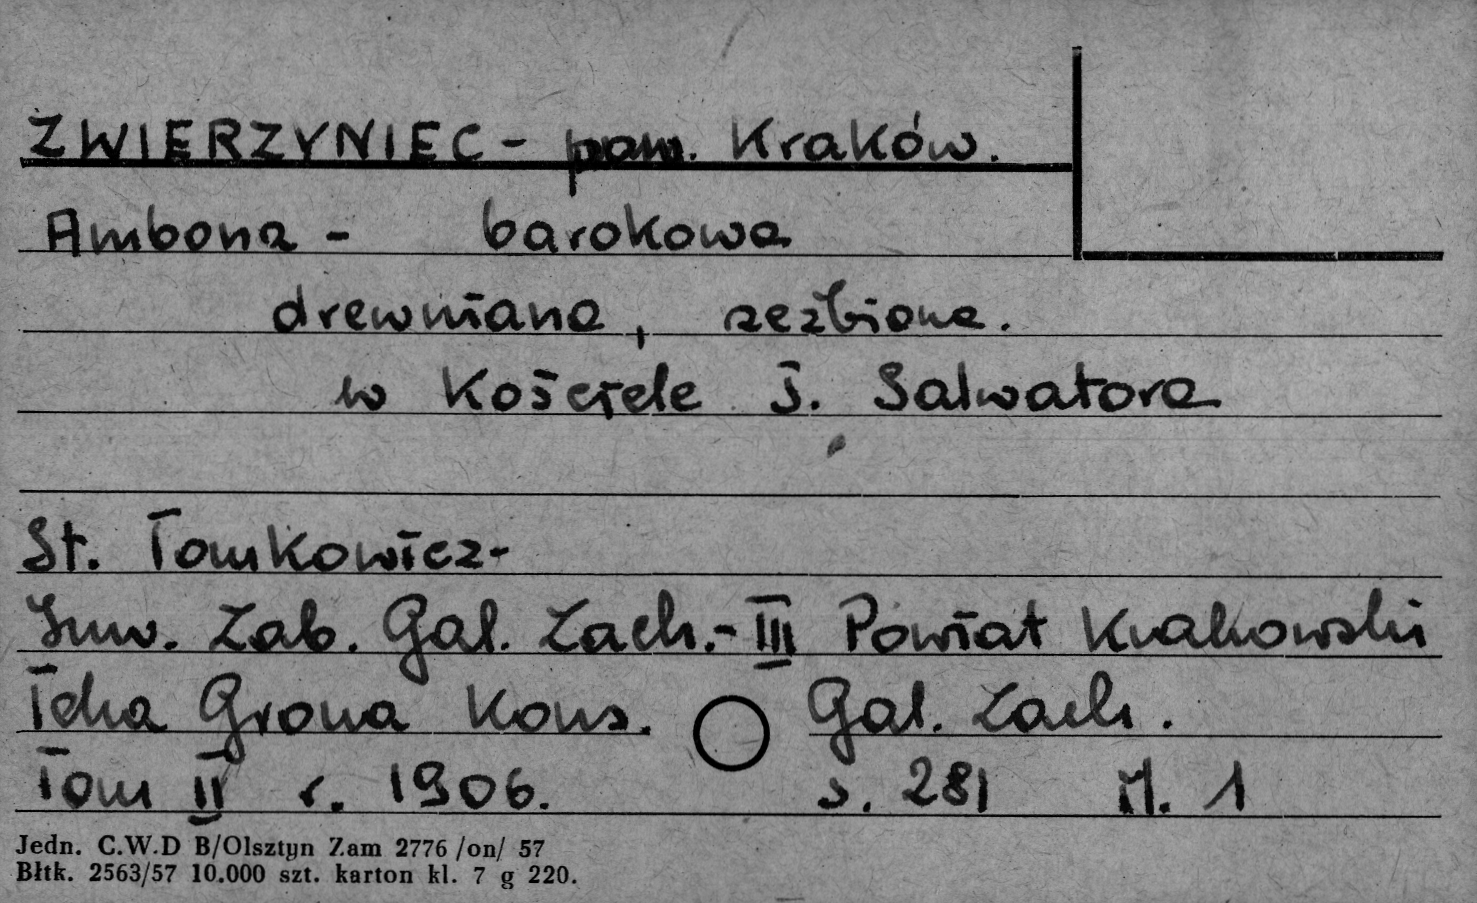 ZWIERZYNIEC - pow. Kraków.
Ambona - barokowa
drewniana, rzeźbiona.
w Kościele Ś. Salwatora
St. Tomkowicz-
Inw. Zab. Gal. Zach.- III Powiat Krakowski
Teka Grona Kons. Gal. Zach.
Tom II r. 1906. s. 281 il. 1
Jedn. C.W.D B/Olsztyn Zam 2776 /on/ 57
Błtk. 2563/57 10.000 szt. karton kl. 7 g 220.